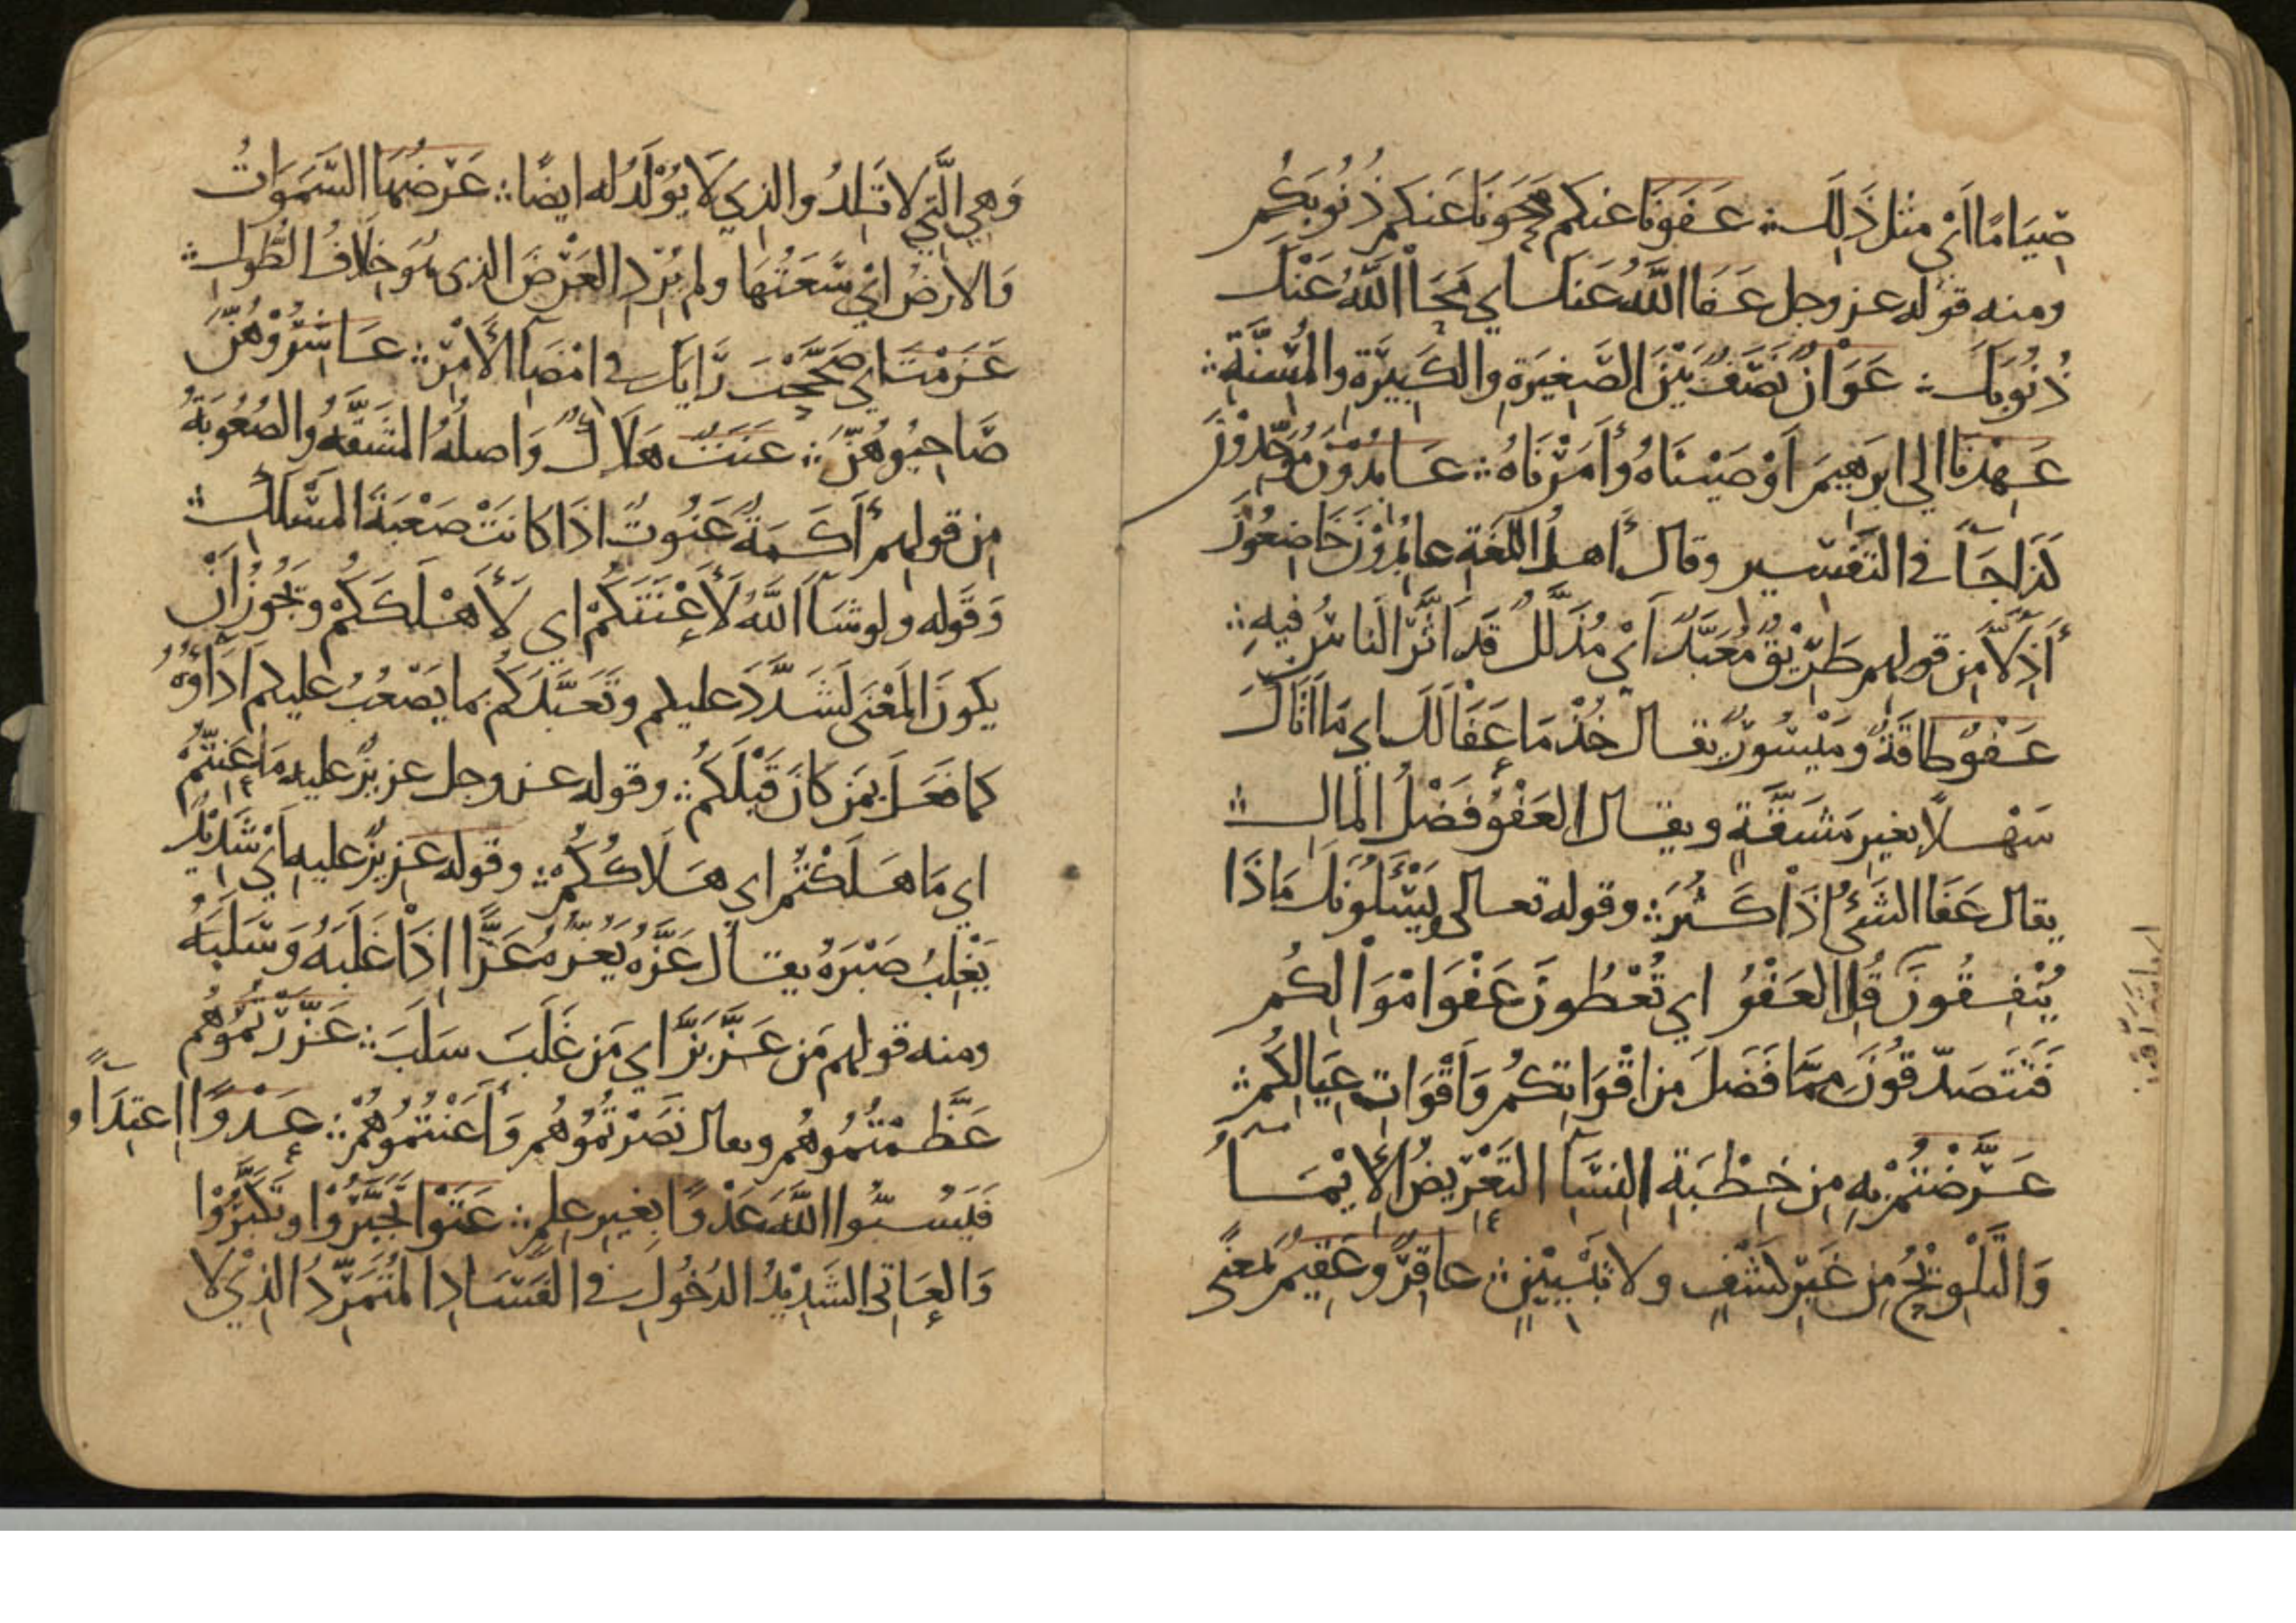 صِيَامًا اَيْ مثل ذَلِكَ ؞ عَفَوْنَا عنكم مَحَوْنَا عَنكم ذُنُوبَكُم
ومنه قوله عز وجل عَفَا اللَّهُ عَنكَ اي مَحَا اللَّهُ عَنْكَ
ذُنُوبَكَ ؞ عَوَانٌ نَصَفٌ بَيْنَ الصَّغِيرَةِ والكَبِيْرَةِ والمُسِنَّةِ ؞
عَهِدْنَا الي ابرَهِيمَ اَوْصَيْنَاهُ وأَمَرْنَاهُ ؞ عَابِدُوْنَ مُوَحِّدُوْنَ
كَذَا جَآ في التفسير وقال أهلُ اللغَةِ عابِدُوْنَ خَاضِعُوْنَ
أَذِلَّآ مِن قولهم طَرِيْقٌ مُعَبَّدٌ اَيْ مُذَلَّلٌ قَد اَثَّرَ النَاسُ فِيهِ ؞
عَفْوٌ طاقَةٌ ومَيْسُورٌ يقال خُذْ مَا عَفَا لَكَ اي مَا اَتَاكَ
سَهْلًا بغيرِ مَشَقَّةٍ ويقال العَفْوُ فَضْلُ المَالِ ؞
يقال عَفَا الشَيْءُ اِذَا كَثُرَ ؞ وقوله تعالى يَسْئَلُونَكَ مَاذَا
يُنْفِقُونَ قُلِ العَفْوُ اي تُعْطُونَ عَفْوَ امْوَالِكُم
فَتَتَصَدّقُونَ مِمَّا فَضَلَ مِن اقْوَاتِكُم وَاَقْوَاتِ عِيَالِكُم ؞
عَرَّضْتُمْ بِهِ مِن خِطْبَةِ النِسَآ التَعْرِيضُ الإيْمَآءُ
وَالتَلْوِيْحُ مِن غَيْرِ كَشْفٍ ولا تَبْيِيْنٍ ؞ عاقِرٌ وعَقِيْمٌ بمَعْنًى
وَهِيَ الَّتي لا تَلِدُ والذِي لَا يُوْلَدُ له ايضًا ؞ عَرْضُهَا السَّمَوَاتُ
وَالارْضُ ايْ سَعَتُهَا ولم يُرِدِ العَرْضَ الذى هُوَ خِلَافُ الطُّولِ ؞
عَزَمْتَ اي صَحَّحْتَ رَايَكَ في امْضَآ الأَمْرِ ؞ عَاشِرُوْهُنَّ
صَاحِبُوهُنَّ ؞ عَنَتٌ هَلَاكٌ وَاصلُهُ المَشَقَّةُ والصُعُوبَةُ
مِن قولهم أَكَمَةٌ عَنُوتٌ اذَا كانَتْ صَعْبَةَ المَسْلَكِ ؞
وَقَوله ولو شَآ اللَّهُ لَأَعْنَتَكُمْ اي لَأَهْلَكَكُمْ وتَجُوزُ اَنْ
يكونَ المَعْنَى لَشَدَّدَ عليكم وتَعَبَّدَكُم بما يَصْعُبُ عليكم اَدَآؤُهُ
كما فَعَلَ بِمَن كَانَ قَبْلَكُم ؞ وقوله عز وجل عزيزٌ عليه مَا عَنِتُّمْ
اي مَا هَلَكْتُم اي هَلَاكُكُم ؞ وقوله عزيزٌ عليه اَيْ شَدِيْدٌ
يَغْلِبُ صَبْرَهُ يقال عَزَّهُ يَعُزُّهُ عَزًّا اِذَا غَلَبَهُ وَسَلَبَهُ
ومنه قولهم مَن عَزَّ بَزَّ اي مَن غَلَبَ سَلَبَ ؞ عَزَّرْتُمُوْهُم
عَظَّمْتُمُوهُم ويقال نَصَرْتُمُوْهُم وَأَعَنْتُمُوهُمْ ؞ عَدْوًا اِعتِدَآءً
فَيَسُبُّوا اللَّهَ عَدْوًا بِغَيرِ عِلمٍ ؞ عَتَوْا تَجَبَّرُوْا وتَكَبَّرُوْا
وَالعَاتِي الشَدِيْدُ الدُخُولِ في الفَسَادِ المُتَمَرِّدُ الذِيْ لا